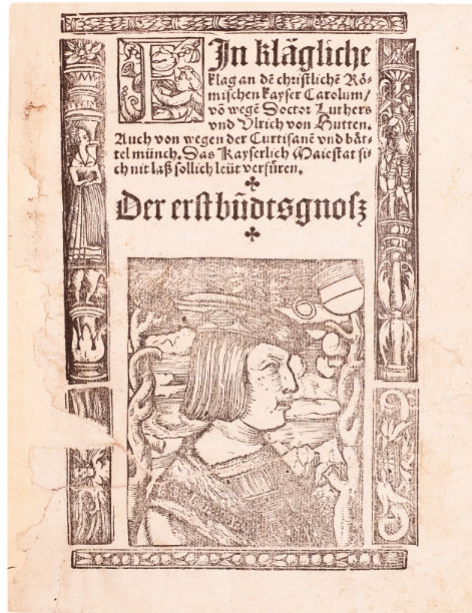 EIn klägliche
klag an dē christlichē Rö-
mischen kayser Carolum/
vō wegē Doctor Luthers
vnd Vlrich von Hutten.
Auch von wegen der Curtisanē vnd bät-
tel münch. Das Kayserlich Maiestat si-
ch nit laß sollich leüt verfüren.
Der erst būdtsgnosz